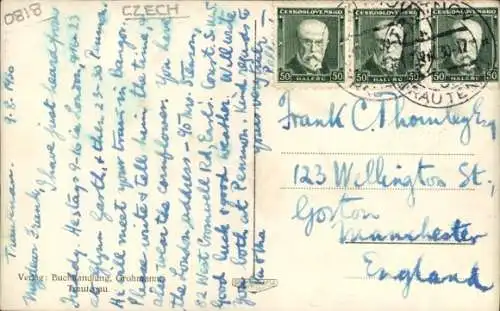 0818
CZECH
ČESKOSLOVENSKO
50 HALERU 50
ČESKOSLOVENSKO
50 HALERU 50
ČESKOSLOVENSKO
50 HALERU 50
TRAUTEN
Trautenau. 7.8.1930
My dear Frank, I have just heard from
Freddy. He stays 9-16 in London, 23
at Glynn Garth, & then 23-30 Penmon.
He will meet your train in Bangor.
Please write & tell him the time,
also wear the cornflower. You have
the London address - 96 Mrs Stenson,
82 West Cromwell Rd, Earls Court S.W.
Good luck & good weather. Will write
you both at Penmon. Kind regards to
Martha
Yours very truly
Frank C. Thornley Esq
123 Wellington St.
Gorton
Manchester
England
Verlag: Buchhandlung, Grohmann,
Trautenau.